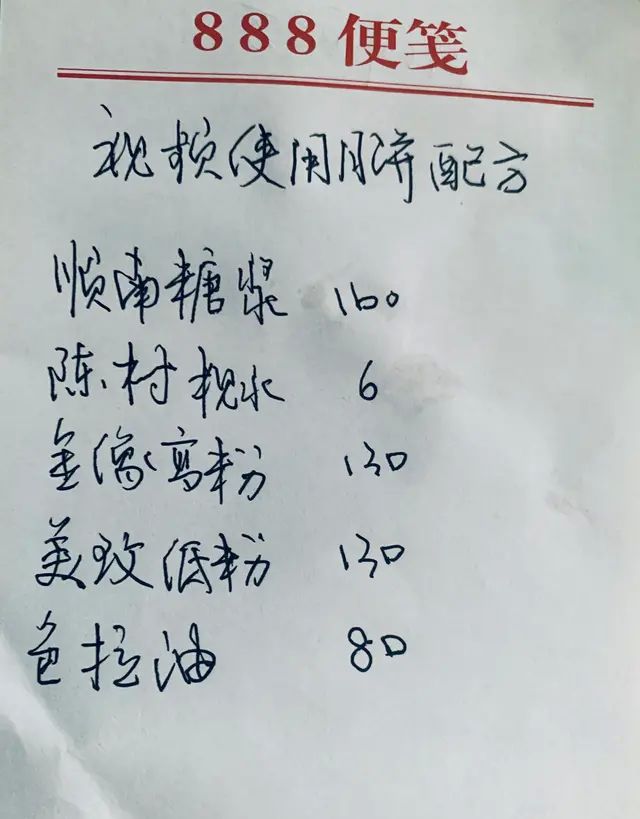 888便笺
视频使用月饼配方
顺南糖浆 160
陈村枧水 6
金像高粉 130
美玫低粉 130
色拉油 80